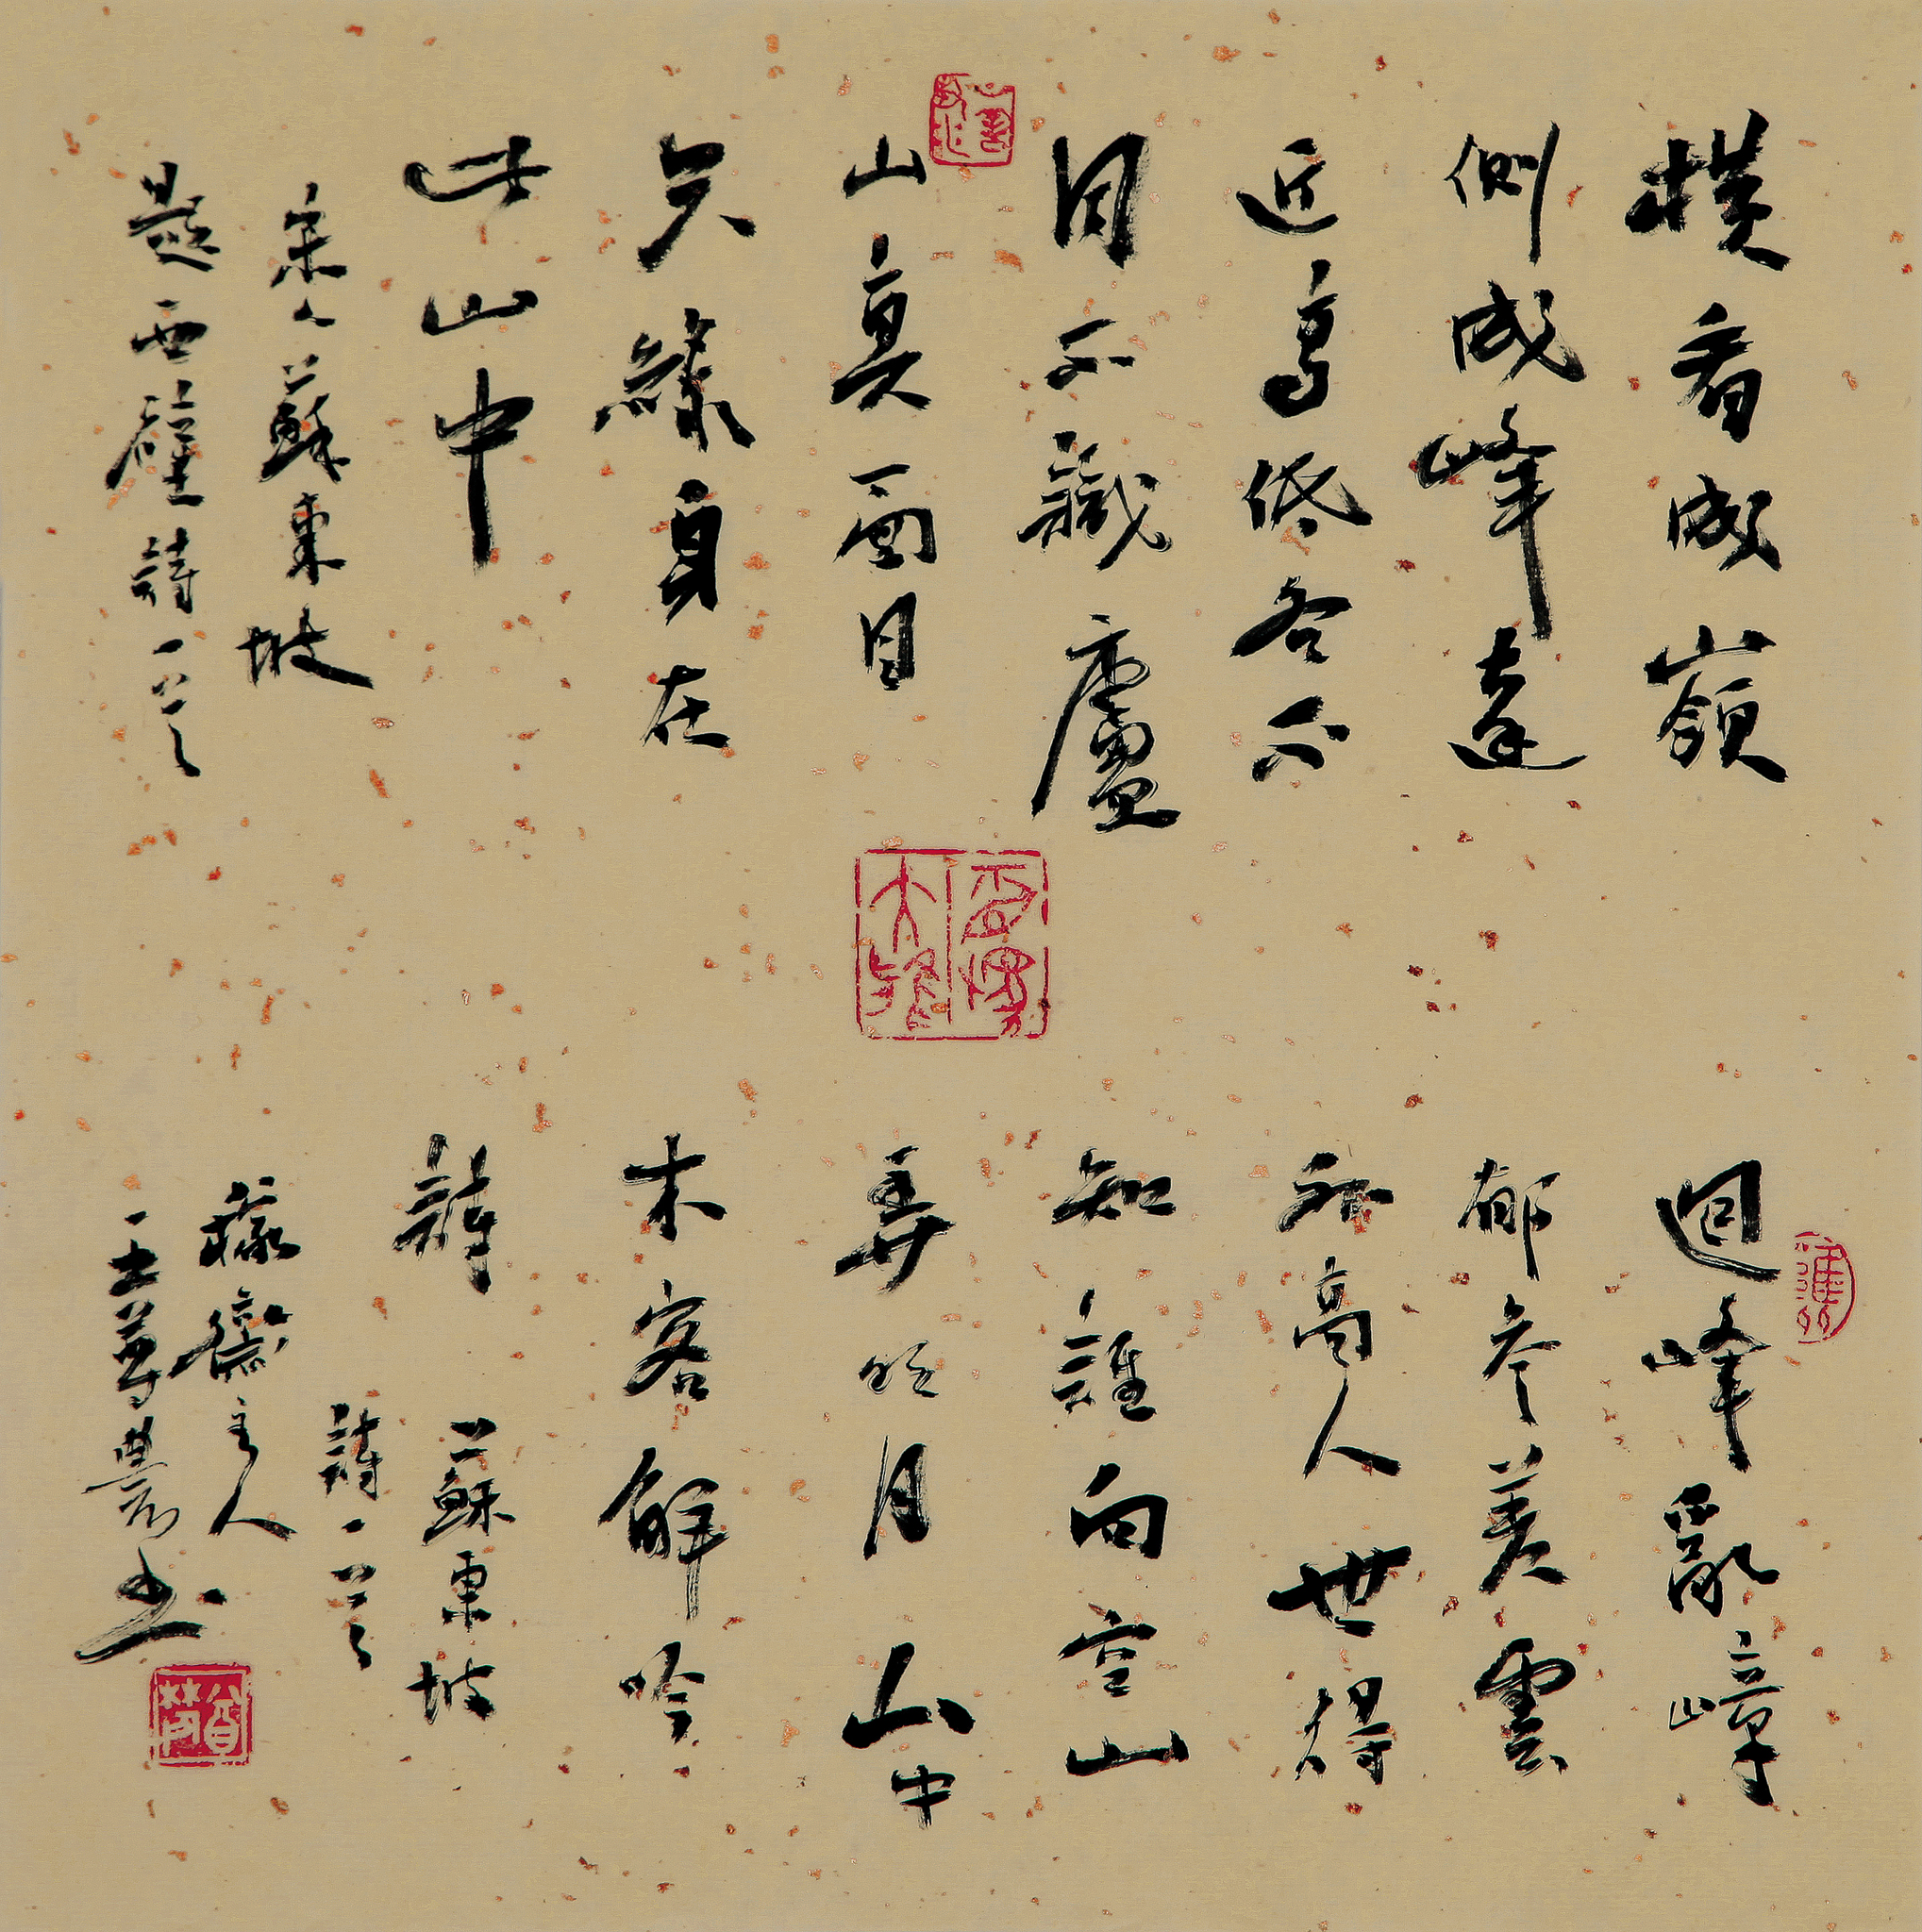 橫看成嶺
側成峰遠
近高低各不
同不識廬
山真面目
只緣身在
此山中
宋人蘇東坡
題西壁詩一首
迴峰亂嶂
郁參差雲
外高人世得
知誰向空山
弄明月山中
木客解吟
詩 蘇東坡
詩一首
齋主人
王尊農书